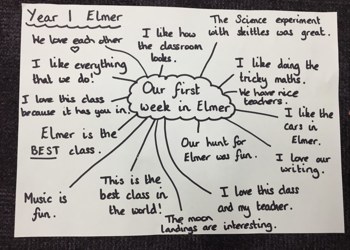 Year 1 Elmer
We love each other
I like how
the classroom
looks.
The Science experiment
with skittles was great.
I like everything
that we do!
I like doing the
tricky maths.
We have nice
teachers.
I love this class
because it has you in.
Our first
week in Elmer
I like the
cars in
Elmer.
Elmer is the
BEST class.
Our hunt for
Elmer was fun.
I love our
writing.
Music is
fun.
This is the
best class in
the world!
I love this class
and my teacher.
The moon
landings are interesting.